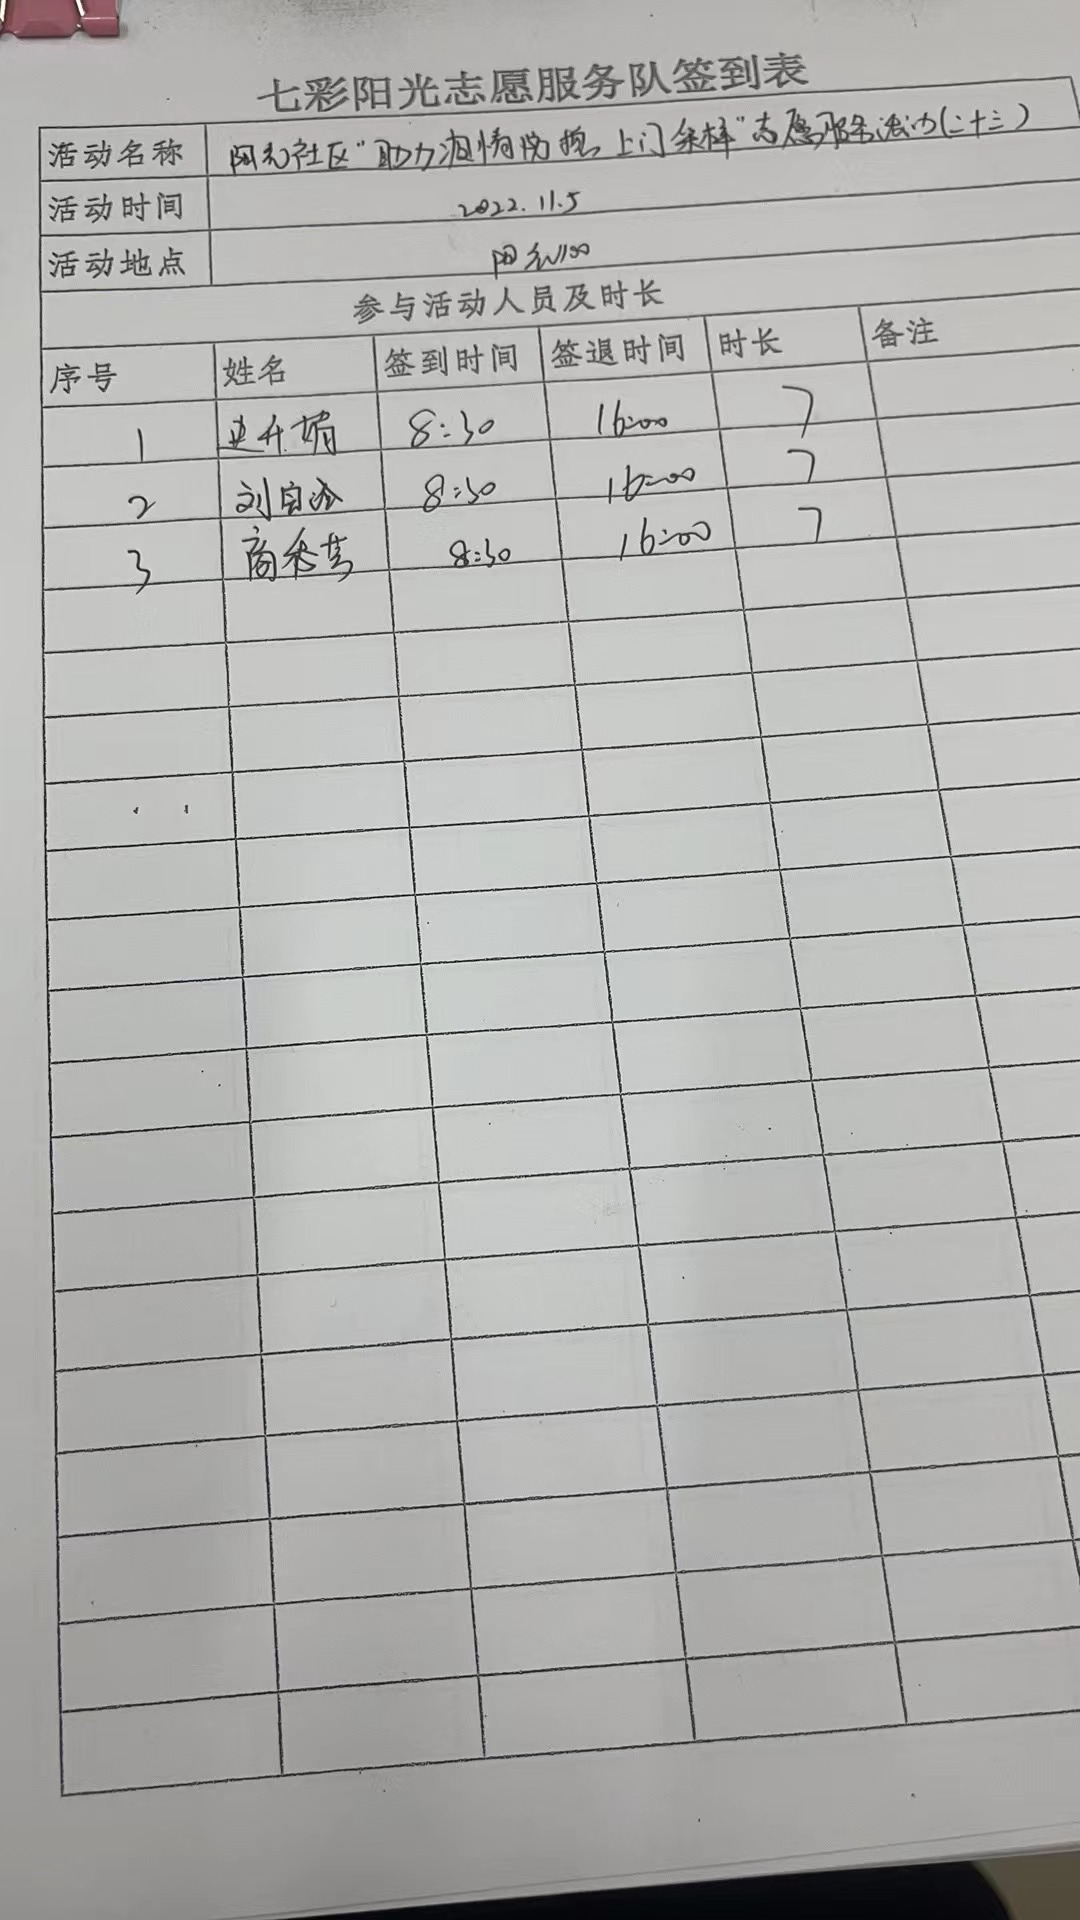 七彩阳光志愿服务队签到表
活动名称 阳光社区"助力疫情防控,上门采样"志愿服务活动(二十三)
活动时间 2022.11.5
活动地点 阳光100
参与活动人员及时长
序号 姓名 签到时间 签退时间 时长 备注
1 8:30 16:00 7
2 刘自 8:30 16:00 7
3 商秀芸 8:30 16:00 7